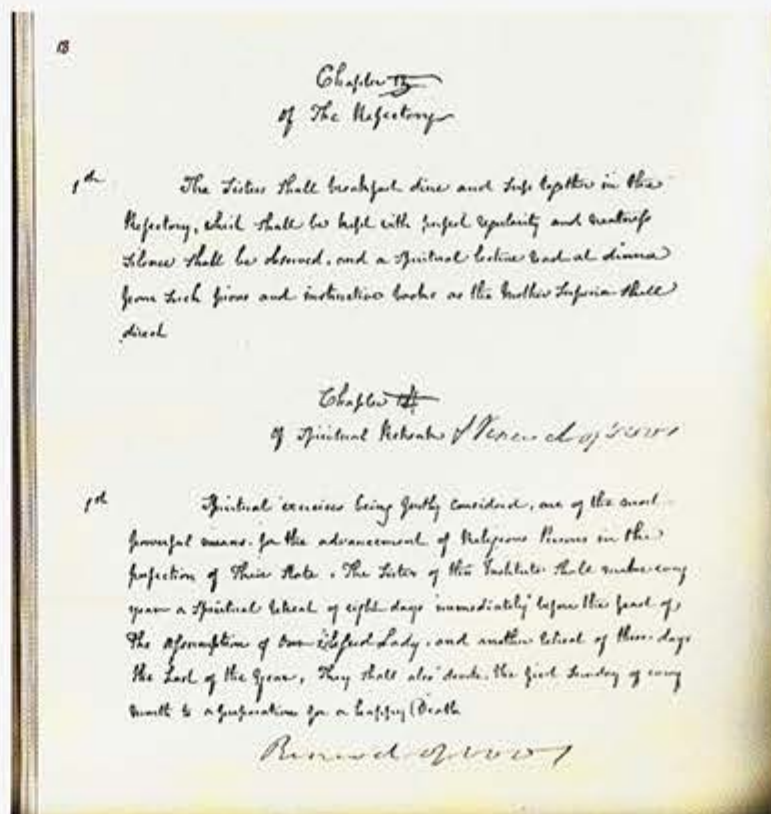 18
Chapter 13
Of The Refectory
1st The Sisters shall breakfast dine and sup together in the
Refectory, which shall be kept with perfect regularity and neatness
Silence shall be observed, and a Spiritual lecture read at dinner
from such pious and instructive books as the Mother Superior shall
direct
Chapter
Of Spiritual Retreats & Renewal of vows
1st Spiritual exercises being justly considered, one of the most
powerful means for the advancement of Religious Persons in the
perfection of Their State. The Sisters of this Institute shall make every
year a Spiritual retreat of eight days immediately before the feast of
The Assumption of Our Blessed Lady, and another retreat of three days
the Last of the Year, They shall also devote the first Sunday of every
month to a preparation for a happy Death
Renewal of vows